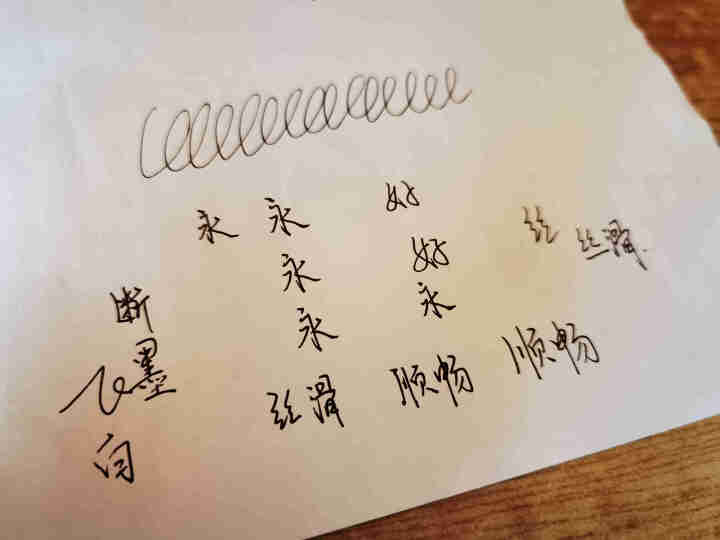 永 永 好 丝
丝滑
永 好
永 永
断墨
飞白
丝滑 顺畅 顺畅